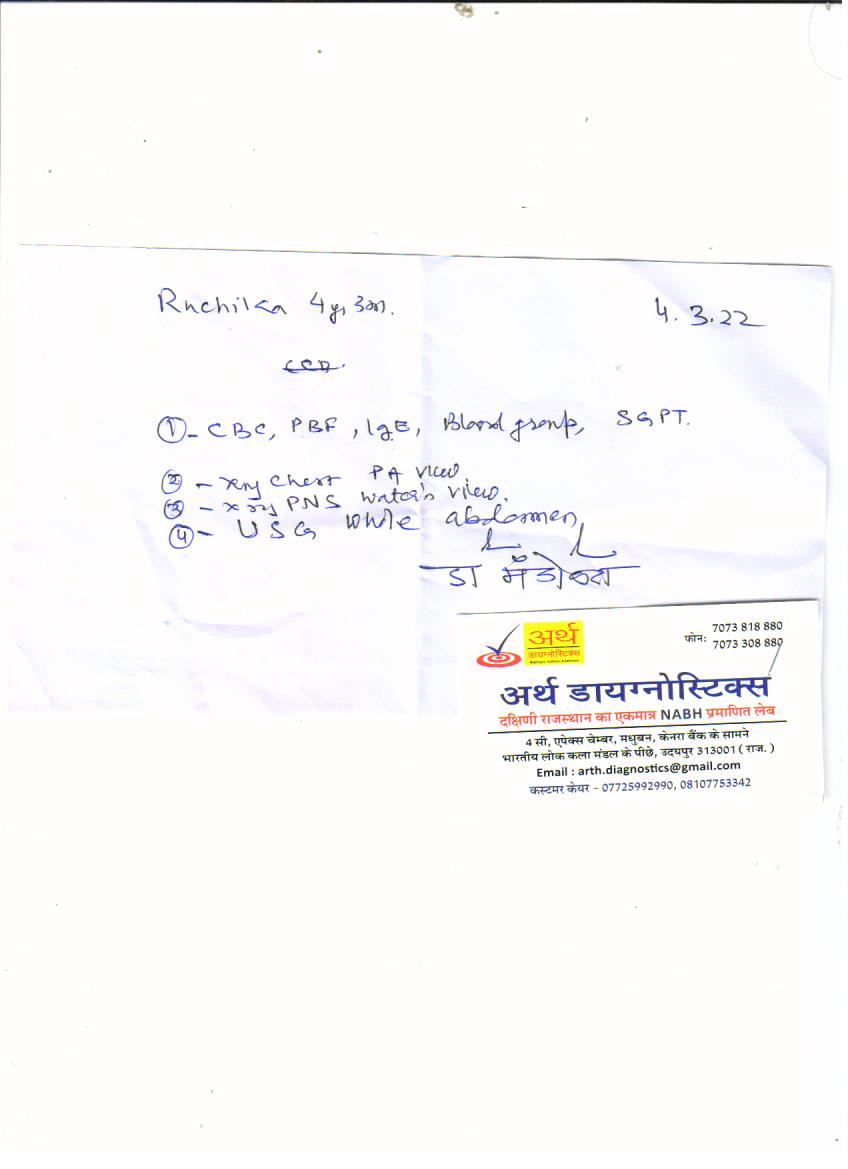 Ruchika 4y, 3m.
4.3.22
①- CBC, PBF, IgE, Blood group, SGPT.
② - xray Chest PA view.
③ - xray PNS water's view.
④ - USG whole abdomen
डा
अर्थ
डायग्नोस्टिक्स
फोन: 7073 818 880
7073 308 880
अर्थ डायग्नोस्टिक्स
दक्षिणी राजस्थान का एकमात्र NABH प्रमाणित लेब
4 सी, एपेक्स चेम्बर, मधुबन, केनरा बैंक के सामने
भारतीय लोक कला मंडल के पीछे, उदयपुर 313001 ( राज. )
Email : arth.diagnostics@gmail.com
कस्टमर केयर - 07725992990, 08107753342